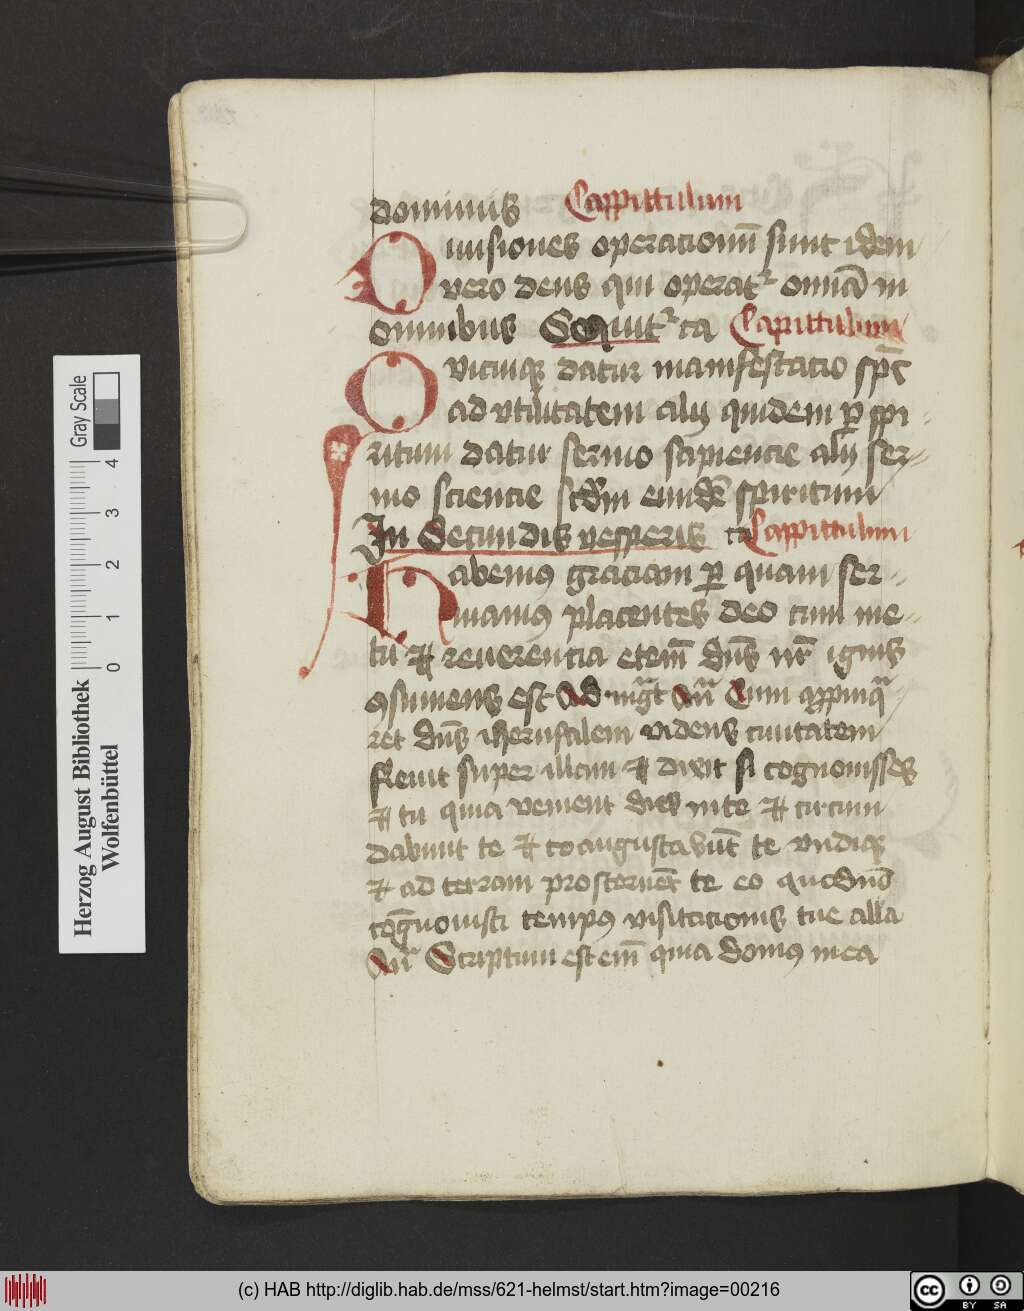 dominus Cappittulum
Diuisiones operacionū sunt idem
vero deus qui operat᷑ omiā in
omnibus Sequit᷑ ca Capittulum
Vnicuiqꝫ datur manifestacio spūs
ad vtilitatem alij quidem ꝑ spi
ritum datur sermo scipiencie alij ser
mo sciencie scdm eundē spiritum
In Secundis vesperis ca Cappittulum
Habemꝰ graciam ꝑ quam ser
uiamꝰ placentes deo cum me
tu ⁊ reuerencia etem̄ dūs nr̄ ignis
ꝯsumens est Ad mg̅t an̄ Cum aꝓpinq̄
ret dūs iherusalem videns ciuitatem
fleuit super illam ⁊ dixit si cognouisses
⁊ tu quia venient dies in te ⁊ circum
dabunt te ⁊ coangustabūt te vndiqꝫ
⁊ ad terram prosternēt te eo quod nō
cog̅nouisti tempꝰ visitacionis tue alla
an̄ Scriptum est em̄ quia domꝰ mea
Herzog August Bibliothek
Wolfenbüttel
Gray Scale
0 1 2 3 4
(c) HAB http://diglib.hab.de/mss/621-helmst/start.htm?image=00216
cc BY SA